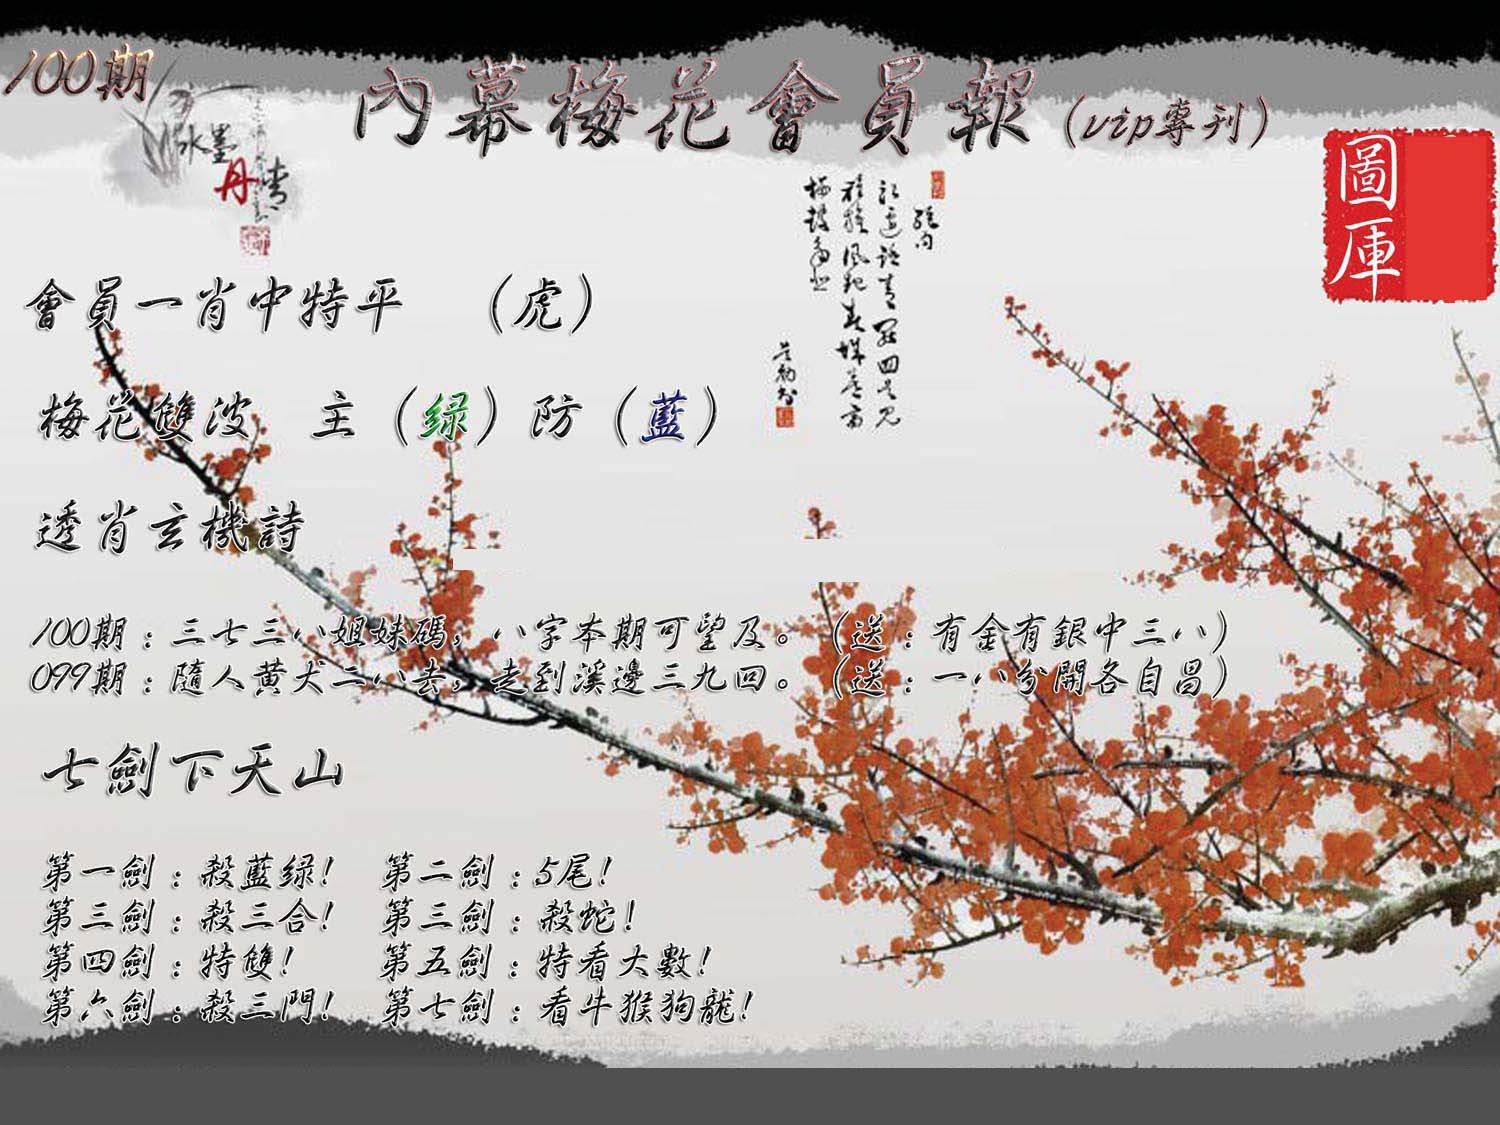 100期
內幕梅花會員報(vip專刊)
水墨
丹青
圖庫
會員一肖中特平 (虎)
梅花雙波 主(绿)防(藍)
透肖玄機詩
100期:三七三八姐妹碼,八字本期可望及。(送:有金有銀中三八)
099期:隨人黄犬二八去,走到溪邊三九回。(送:一八分開各自昌)
七劍下天山
第一劍:殺藍绿! 第二劍:5尾!
第三劍:殺三合! 第三劍:殺蛇!
第四劍:特雙! 第五劍:特看大數!
第六劍:殺三門! 第七劍:看牛猴狗龍!